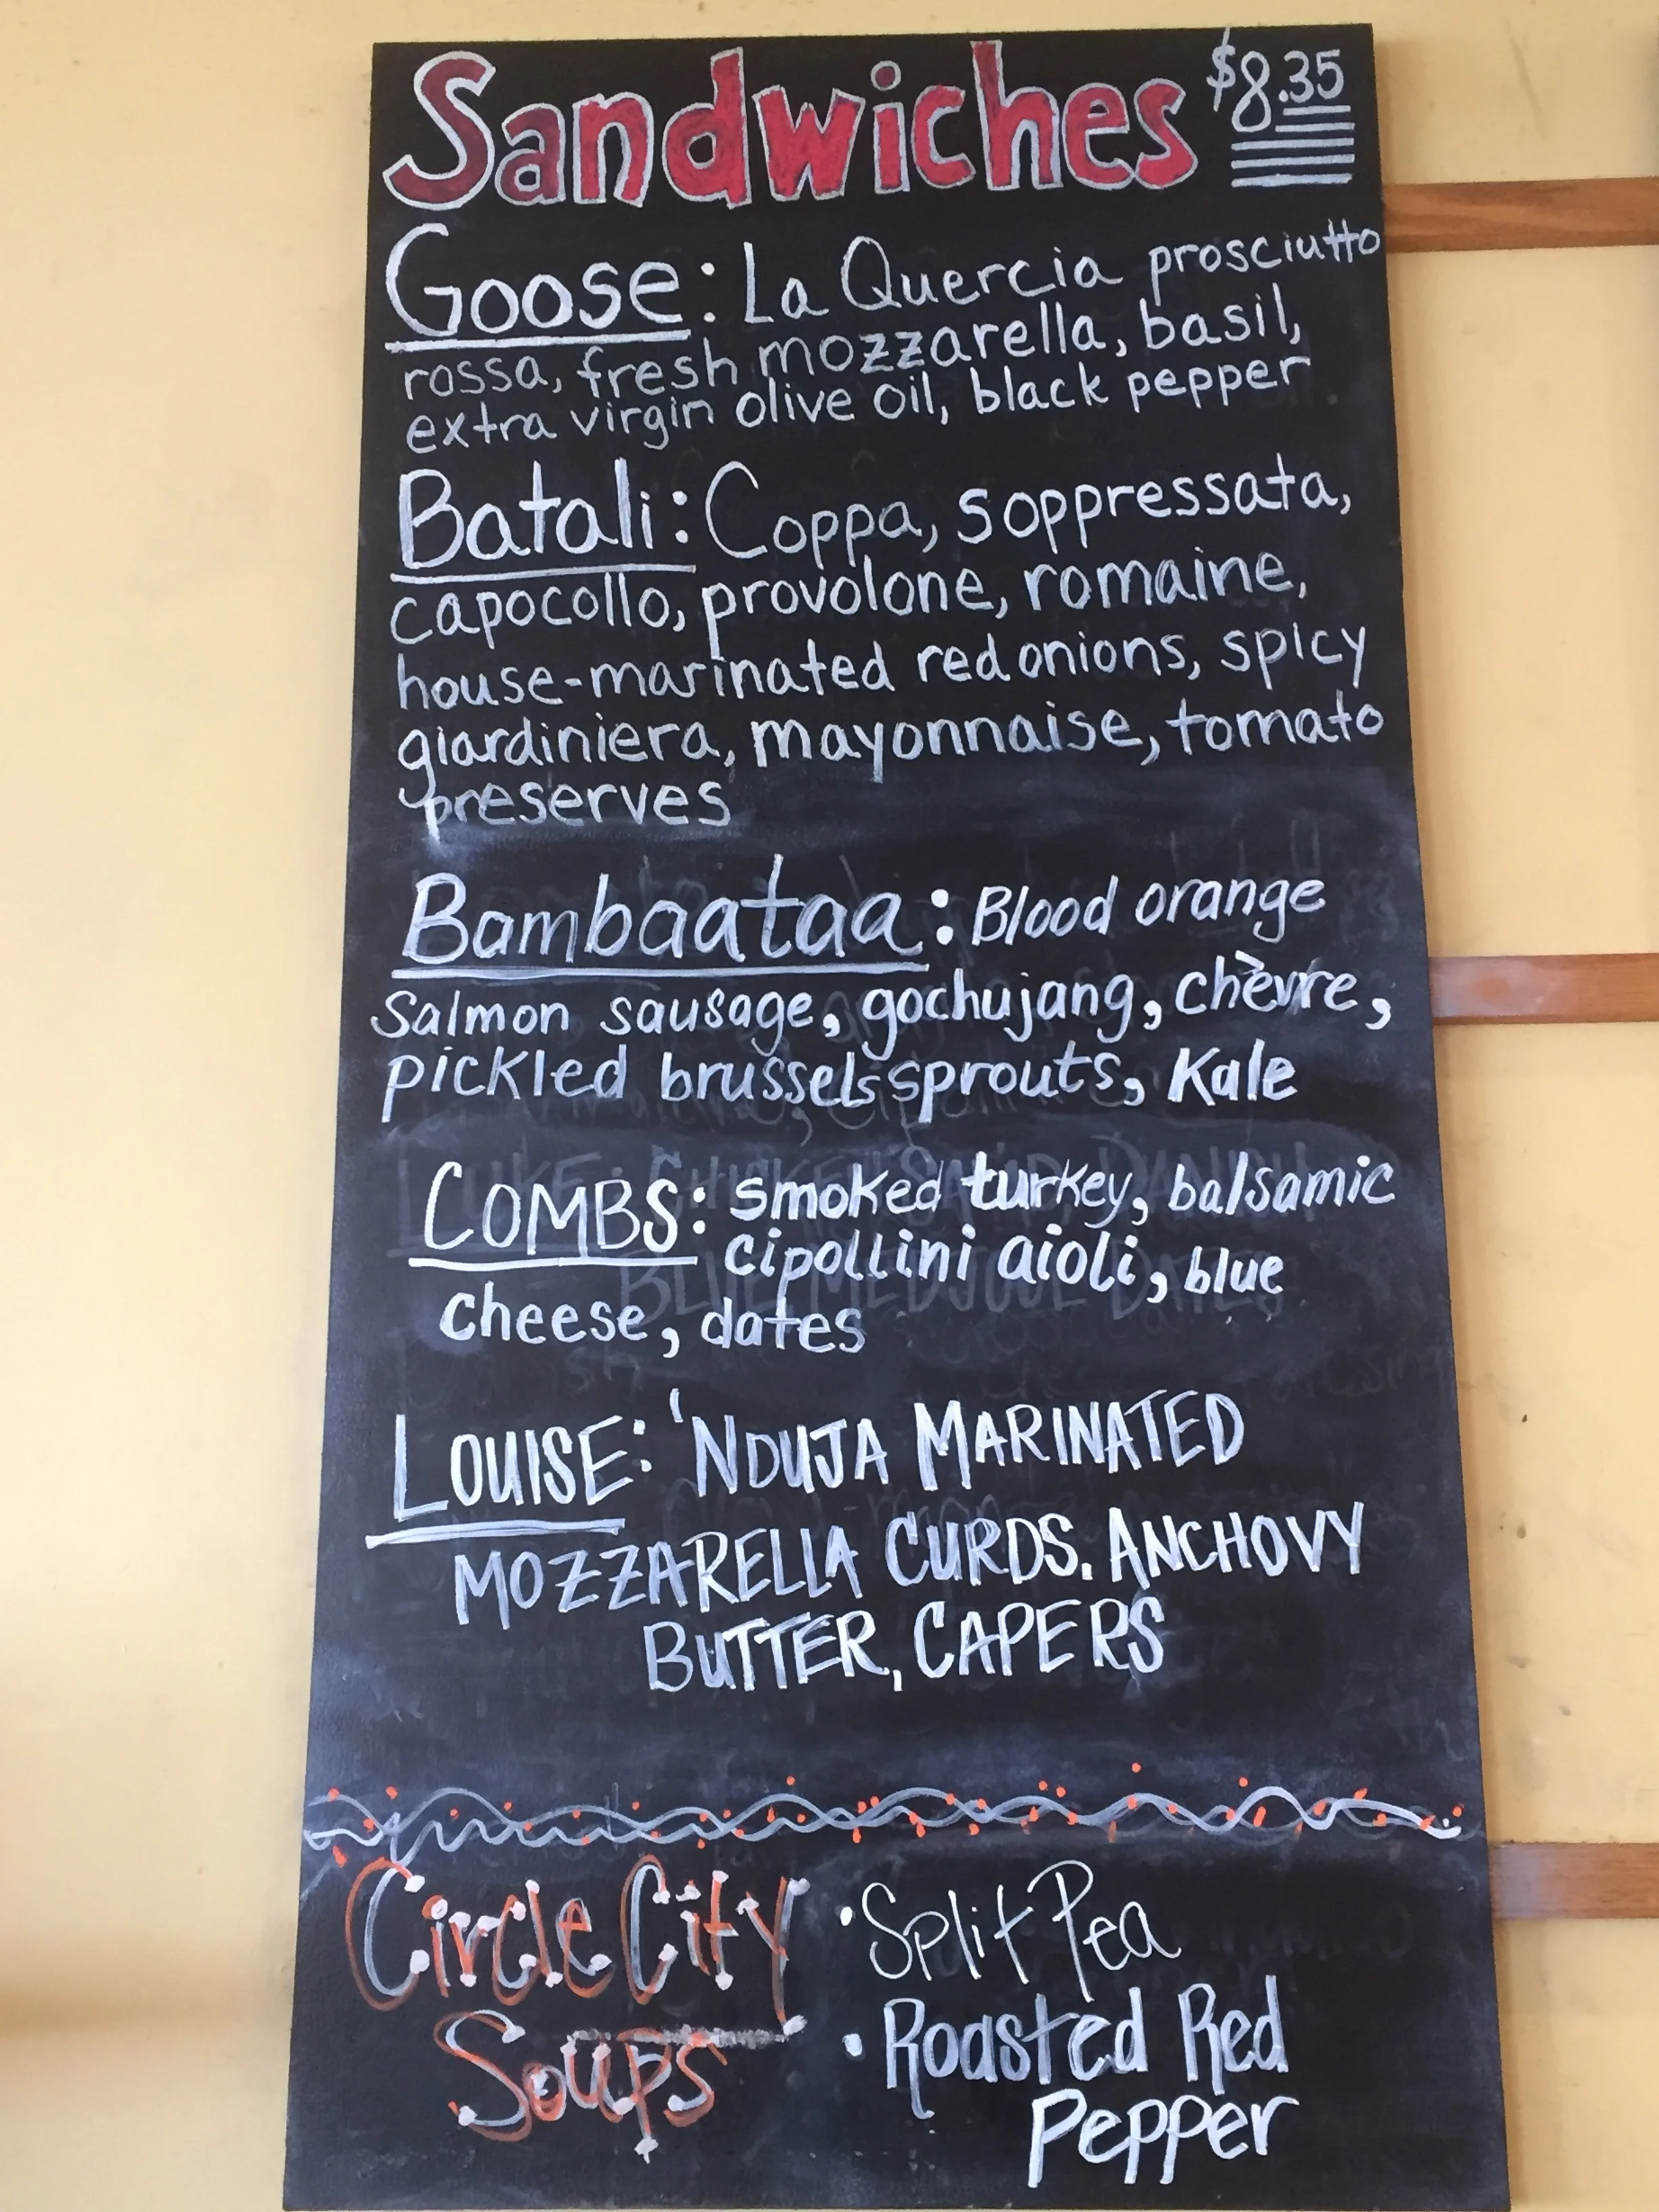 Sandwiches $8.35
Goose: La Quercia prosciutto
rossa, fresh mozzarella, basil,
extra virgin olive oil, black pepper
Batali: Coppa, soppressata,
capocollo, provolone, romaine,
house-marinated red onions, spicy
giardiniera, mayonnaise, tomato
preserves
Bambaataa: Blood orange
Salmon sausage, gochujang, chèvre,
pickled brussels sprouts, Kale
COMBS: smoked turkey, balsamic
cipollini aioli, blue
cheese, dates
LOUISE: 'NDUJA MARINATED
MOZZARELLA CURDS. ANCHOVY
BUTTER, CAPERS
Circle City
Soups
• Split Pea
• Roasted Red
Pepper